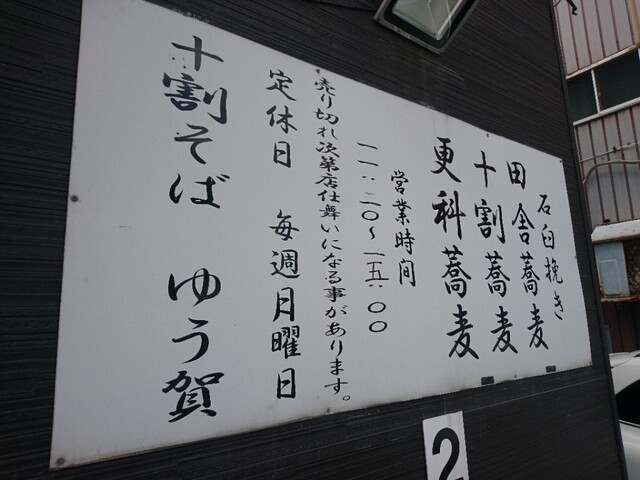 石臼挽き
田舎蕎麦
十割蕎麦
更科蕎麦
営業時間
一一:二〇〜一五:〇〇
売り切れ次第店仕舞いになる事があります。
定休日 毎週月曜日
十割そば ゆう賀
2